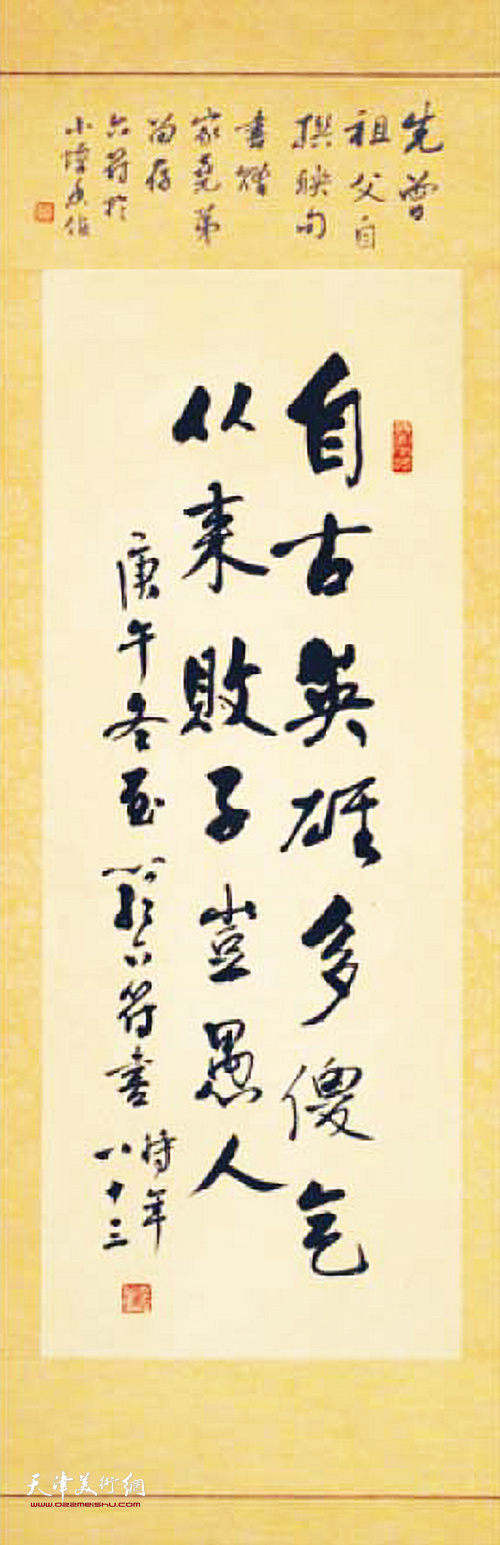 先曾
祖父自
撰联句
書赠
家尧弟
留存
六符於
小
自古英雄多傻气
从来敗子豈愚人
庚午冬至
六符書
時年
八十三
天津美術網
www.022meishu.com